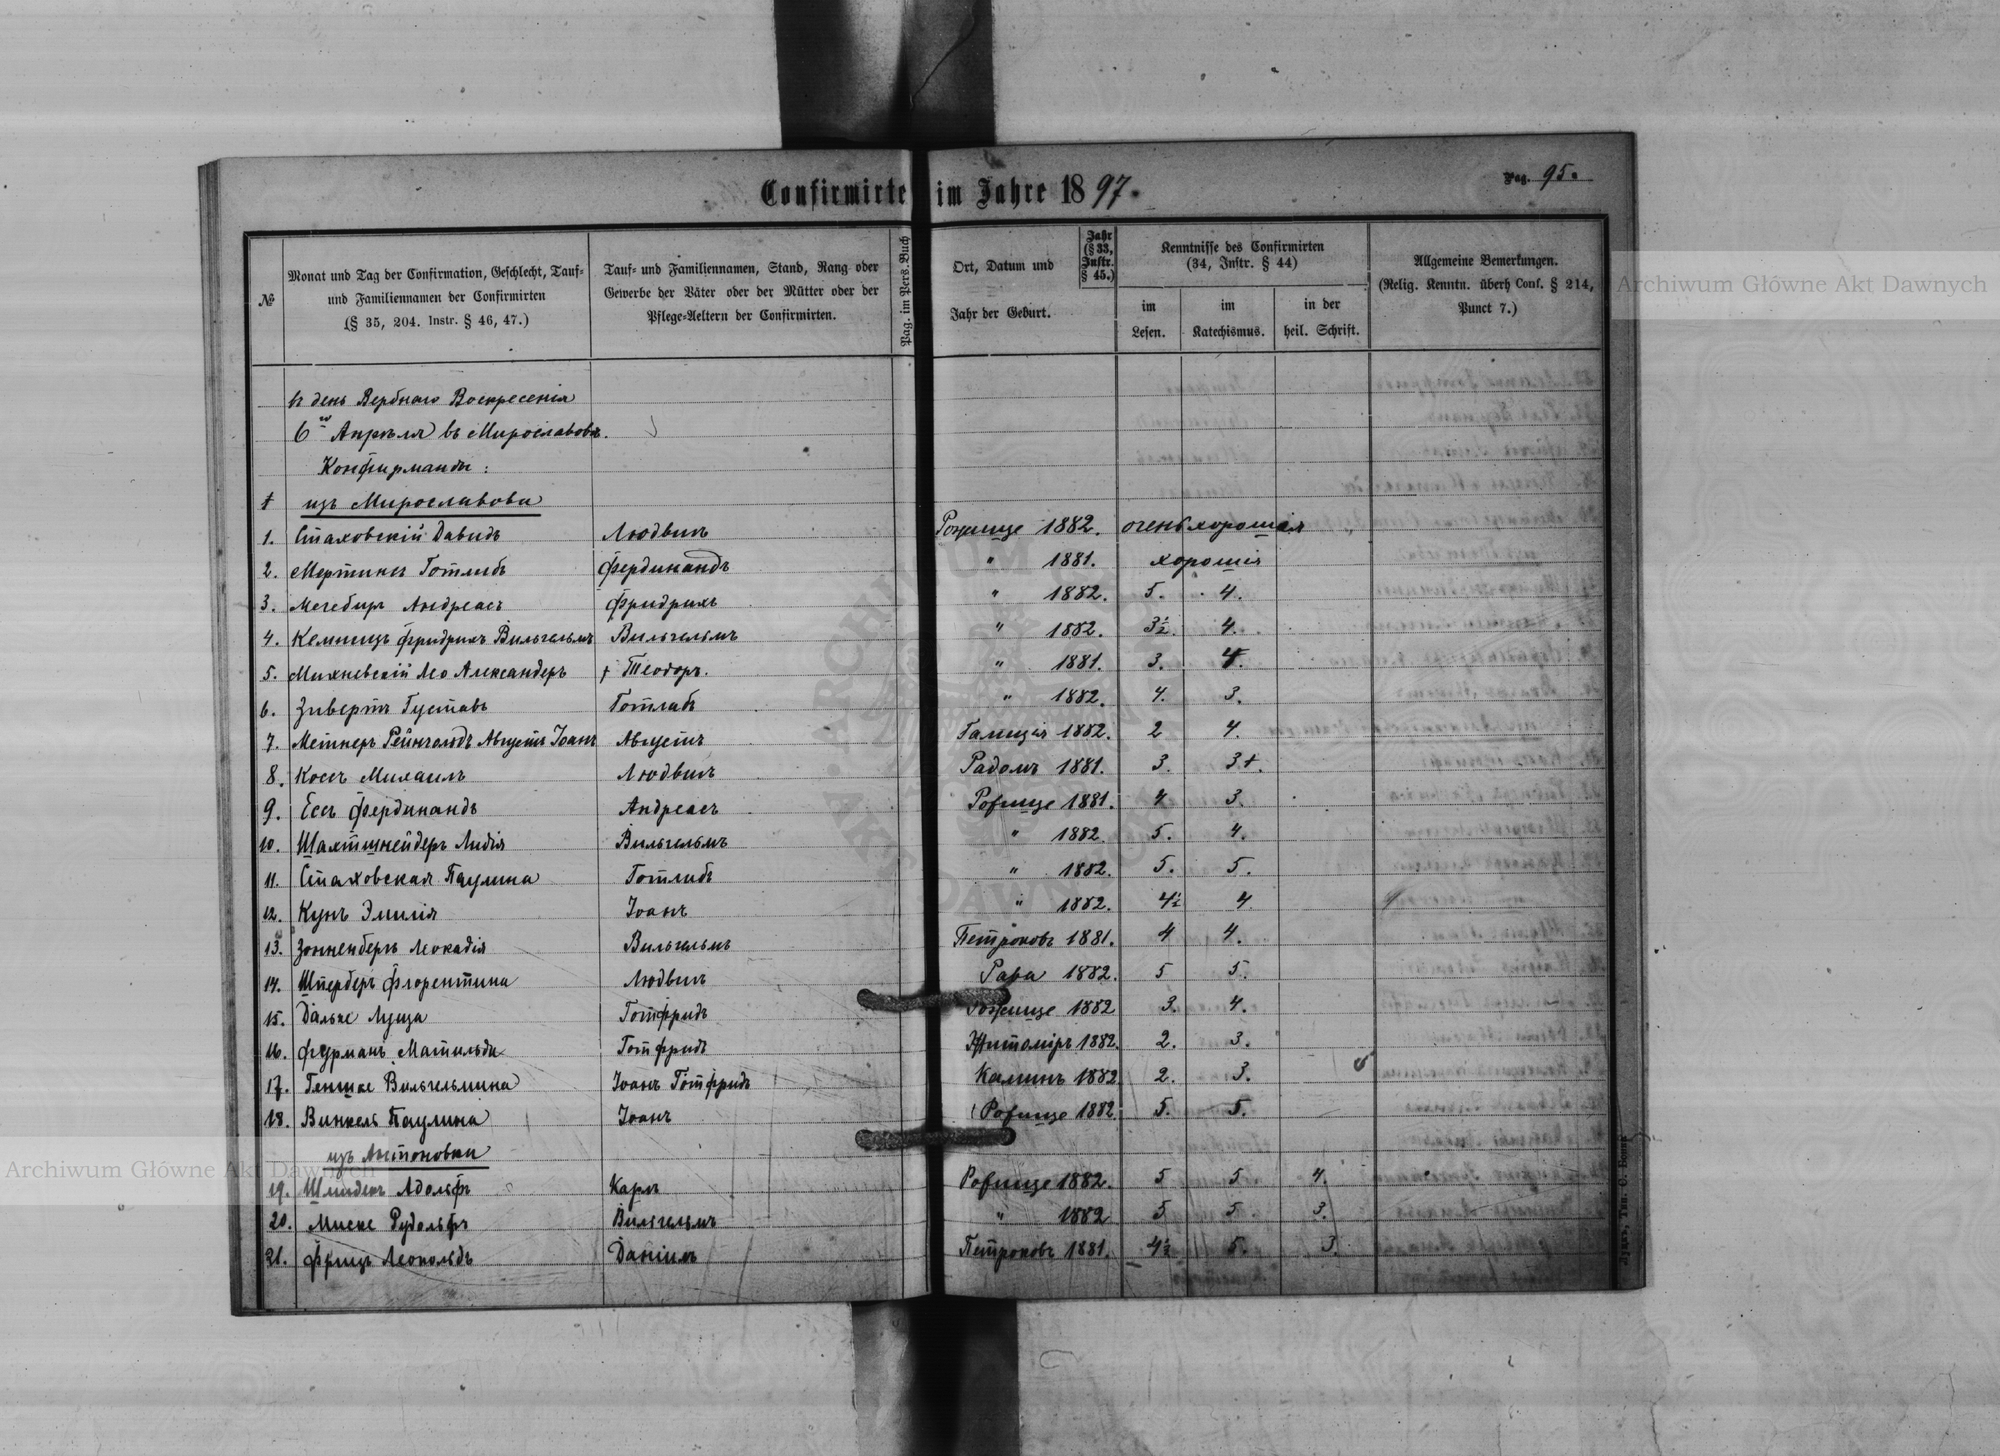 Confirmirte im Jahre 1897.
Pag. 95.
№
Monat und Tag der Confirmation, Geschlecht, Tauf-
und Familiennamen der Confirmirten
(§ 35, 204. Instr. § 46, 47.)
Tauf- und Familiennamen, Stand, Rang oder
Gewerbe der Väter oder der Mütter oder der
Pflege-Aeltern der Confirmirten.
Pag. im Pers. Buch
Ort, Datum und
Jahr der Geburt.
Jahr
(§ 33,
Instr.
§ 45.)
Kenntnisse des Confirmirten
(34, Instr. § 44)
im
Lesen.
im
Katechismus.
in der
heil. Schrift.
Allgemeine Bemerkungen.
(Relig. Kenntn. überh Conf. § 214,
Punct 7.)
въ день Вербнаго Воскресенія
6го Апрѣля въ Мирославовѣ.
Конфирманды:
изъ Мирославова
1. Стаховскій Давидъ Людвигъ Рожище 1882. очень хорошія
2. Мертинсъ Готлибъ Фердинандъ " 1881. хорошія
3. Мегебиръ Андреасъ Фридрихъ " 1882. 5. 4.
4. Кемницъ Фридрихъ Вильгельмъ Вильгельмъ " 1882. 3½. 4.
5. Михневскій Лео Александеръ † Теодоръ. " 1881. 3. 4.
6. Зивертъ Густавъ Готлибъ " 1882. 4. 3.
7. Метнеръ Рейнгольдъ Августъ Іоанъ Августъ Галиція 1882. 2 4.
8. Косъ Михаилъ Людвигъ Радомъ 1881. 3. 3+.
9. Ессъ Фердинандъ Андреасъ Рожище 1881. 4 3.
10. Шахтшнейдеръ Лидія Вильгельмъ " 1882 5. 4.
11. Стаховская Паулина Готлибъ " 1882. 5. 5.
12. Кунъ Эмилія Іоанъ " 1882. 4½ 4
13. Зонненбергъ Леокадія Вильгельмъ Петроковъ 1881. 4 4.
14. Шпербергъ Флорентина Людвигъ Рава 1882. 5 5.
15. Дальке Луиза Готфридъ Рожище 1882 3. 4.
16. Фурманъ Матильда Готфридъ Житоміръ 1882. 2. 3.
17. Геншке Вильгельмина Іоанъ Готфридъ Калишъ 1882 2. 3.
18. Винкель Паулина Іоанъ Рожище 1882. 5. 5.
изъ Антоновки
19. Шлидекъ Адольфъ Карлъ Рожище 1882. 5 5 4.
20. Миске Рудольфъ Вильгельмъ " 1882 5 5. 3.
21. Фрицъ Леопольдъ Даніилъ Петроковъ 1881. 4½ 5. 3.
Archiwum Główne Akt Dawnych
Archiwum Główne Akt Dawnych